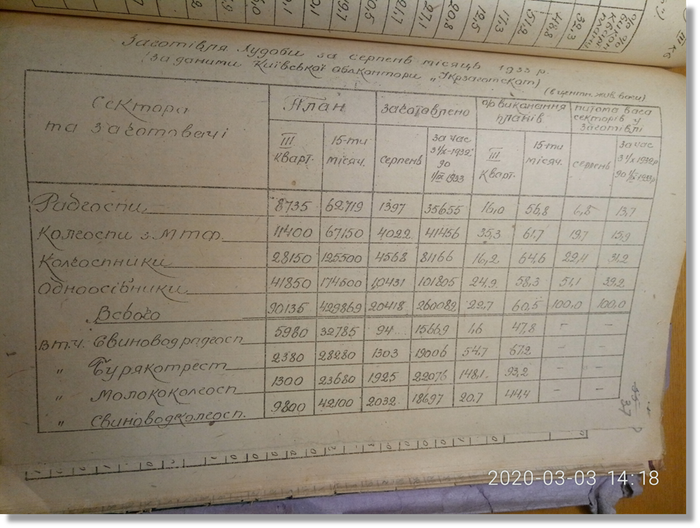 Заготівля худоби за серпень місяць 1933 р.
(За даними Київської облконтори „Укрзаготскот)
(в центн. жив. ваги)
Сектори та заготовачі План заготовлено % виконання планів питома вага секторів у заготівлі
III кварт. 15-ти місяч. серпень за час з 1/IX-1932 до 1/IX 1933 III кварт. 15-ти місяч. серпень
Радгоспи 8735 62719 1397 35655 16,0 56,8 6,8 13,7
Колгоспи з МТФ 11400 67150 4022 41456 35,3 61,7 19,7 15,9
Колгоспники 28150 125500 4568 81166 16,2 64,6 22,4 31,2
Одноосібники 41850 174500 10431 101805 24,9 58,3 51,1 39,2
Всього 90135 429869 20418 260082 22,7 60,5 100,0 100,0
в т.ч. Свиноводрадгосп 5980 32785 94 15669 1,6 47,8 - -
„ Бурякотрест 2380 28280 1303 19006 54,7 67,2 - -
„ Молококолгосп 1300 23680 1925 22076 148,1 93,2 - -
„ Свиноводколгосп. 9800 42100 2032 18697 20,7 44,4 - -
37
2020-03-03 14:18